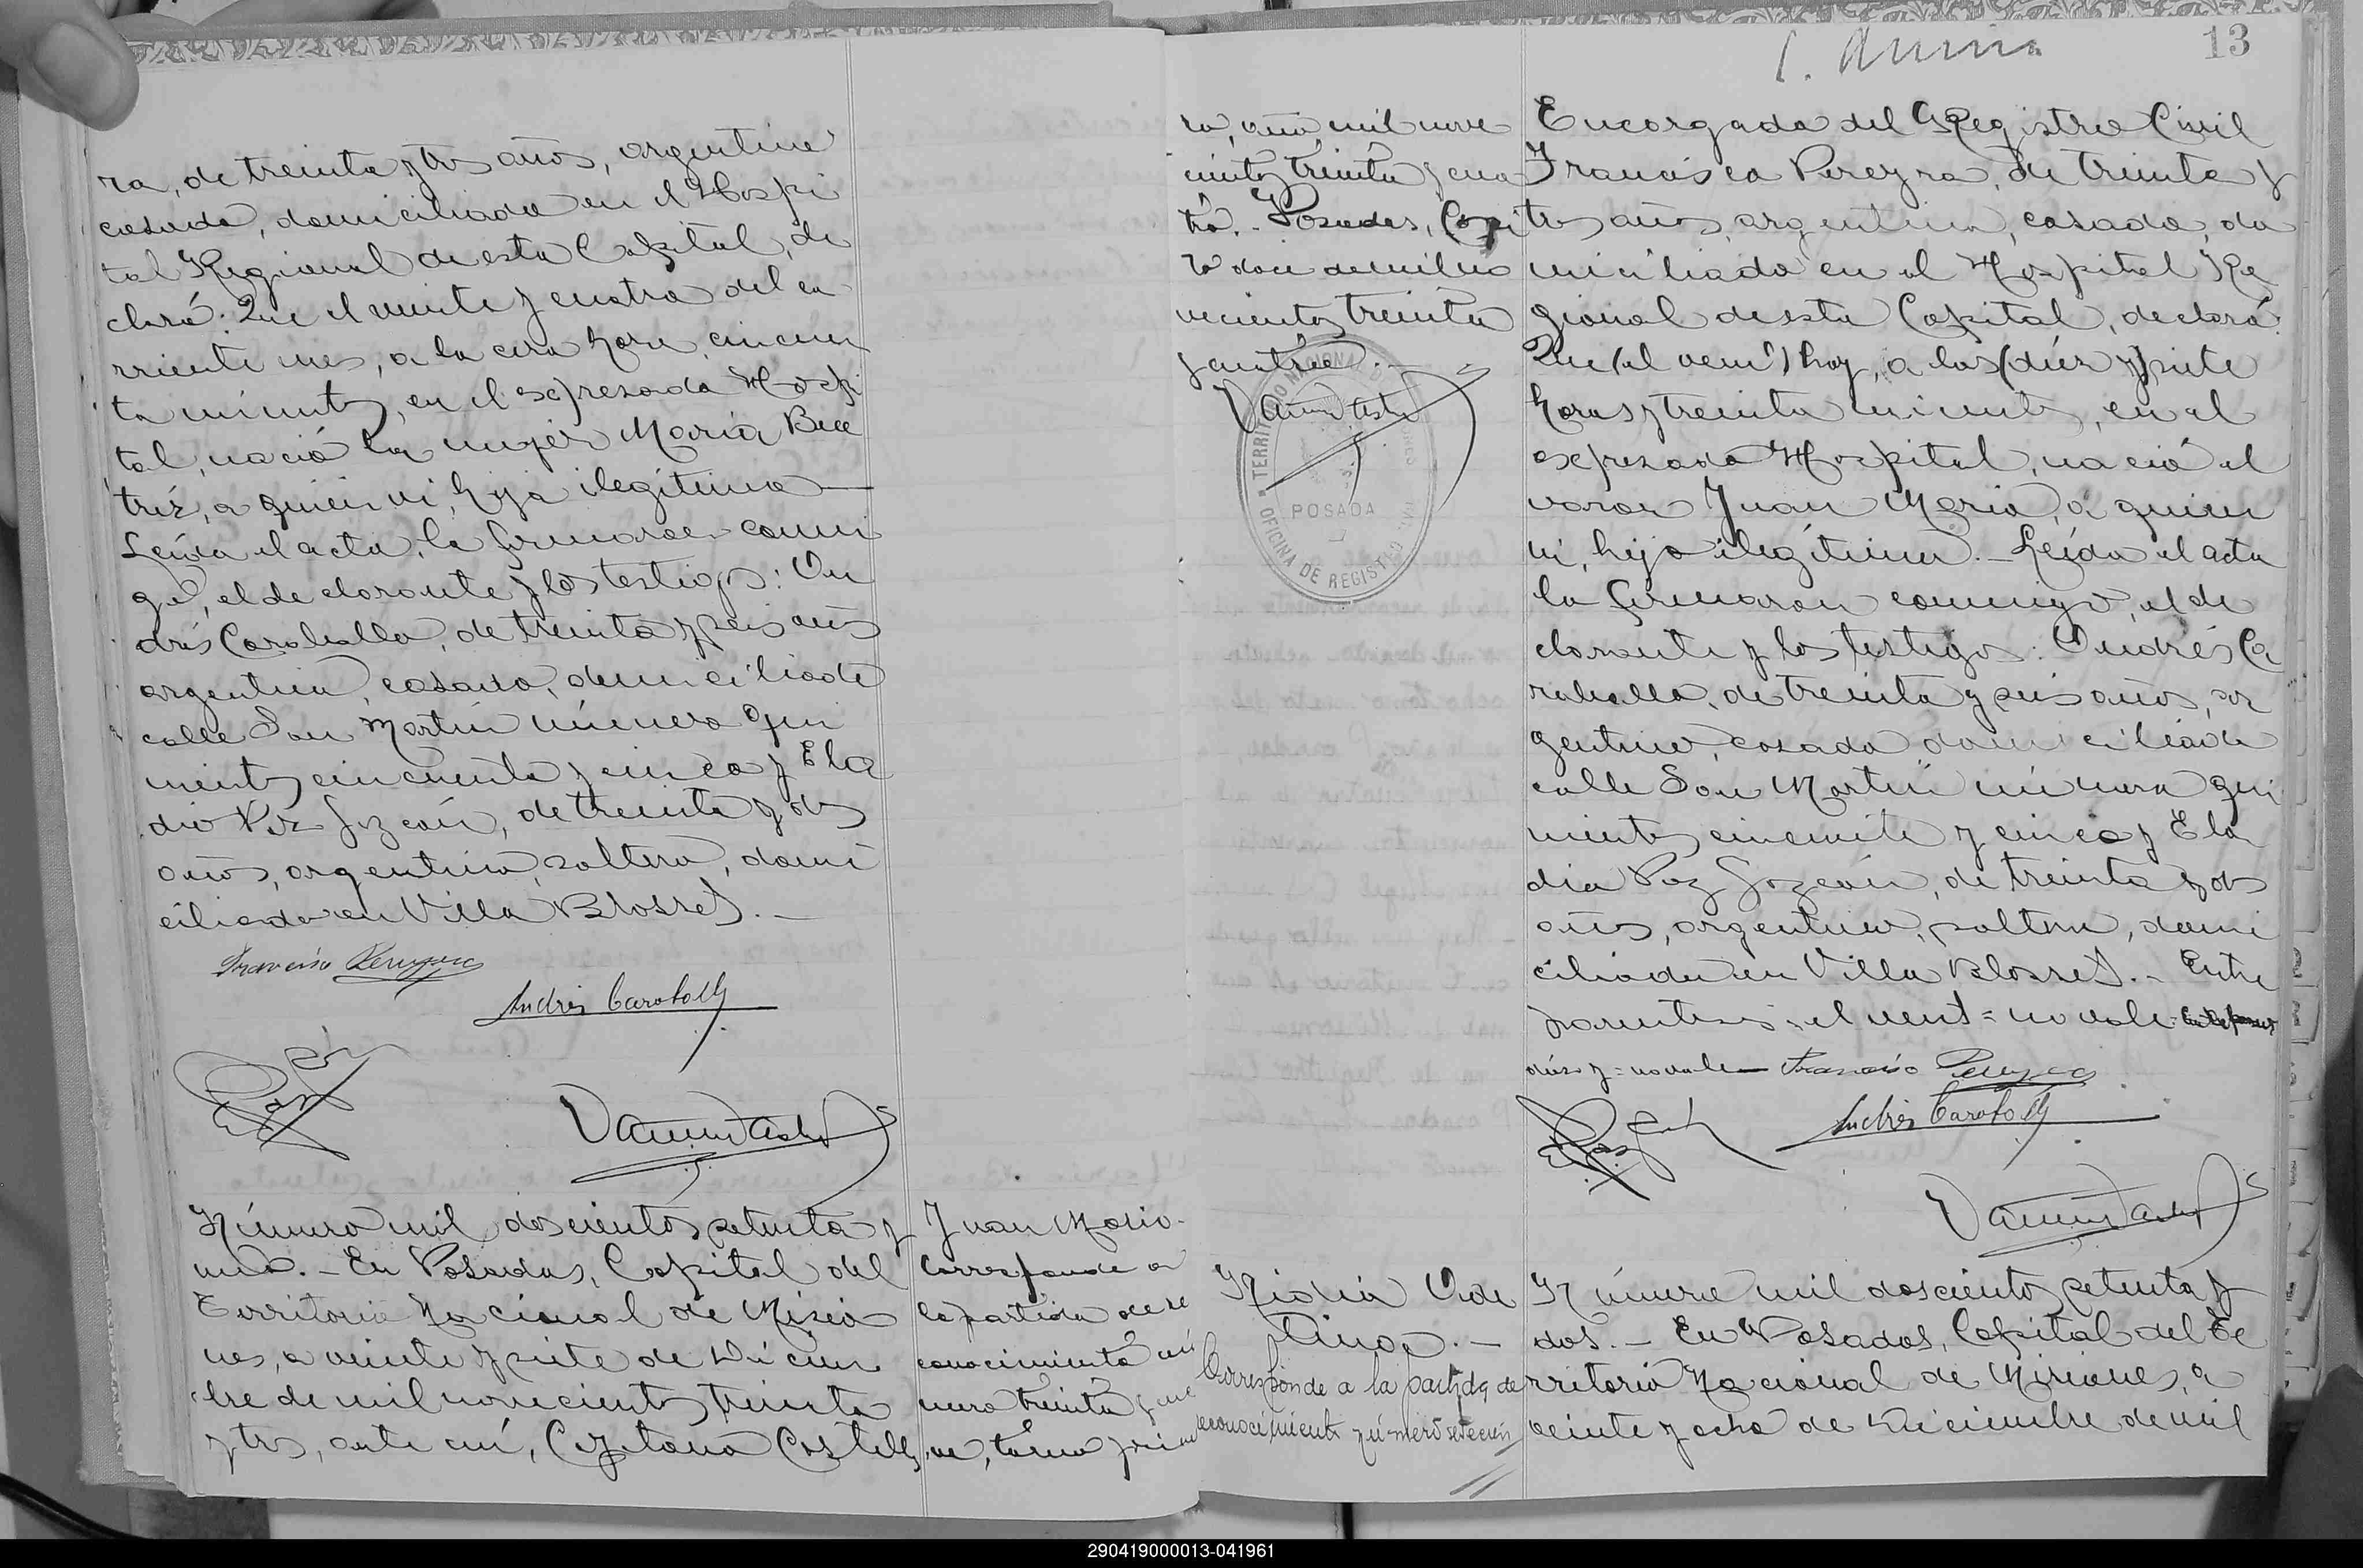 ra, de treinta y tres años, argentino
casado, domiciliado en el Hospi
tal Regional de esta Capital, de
claró: Que el veinte y cuatro del co
rriente mes, a la cera hora cincuen
ta minutos, en el expresado Hospi
tal, nació la mujer María Bea
triz, a quien vi, hija ilegítima
Leída el acta, la firmaron conmi
go, el declarante y los testigos: An
drés Caraballo, de treinta y seis años
argentino, casado, domiciliado
calle San Martín número qui
nientos cincuenta y cinco y Ela
dio Paz, de treinta y dos
años, argentino, soltero, domi
ciliado en Villa Blosset.
Francisco Pereyra
Andrés Caraballo
Número mil doscientos setenta y
uno. - En Posadas, Capital del
Territorio Nacional de Misio
nes, a veinte y siete de Diciem
bre de mil novecientos treinta
y tres, ante mí, Cayetano Castelli
Juan Mario.
Corresponde a
la partida de re
conocimiento nú
mero treinta y nue
ve, tomo prime
ro, año mil nove
cientos treinta y cua
tro. - Posadas,
ro doce de mil no
vecientos treinta
y cuatro.
TERRITORIO NACIONAL
POSADAS
OFICINA DE REGISTRO
13
Encargado del Registro Civil
Francisco Pereyra, de treinta y
tres años, argentino, casado, do
miciliado en el Hospital Re
gional de esta Capital, declaró:
Que (el veint) hoy, a las (diez y) siete
horas y treinta minutos, en el
expresado Hospital, nació el
varon Juan Mario, a quien
vi, hijo ilegítimo. - Leída el acta
la firmaron conmigo, el de
clarante y los testigos: Andrés Ca
raballo, de treinta y seis años, ar
gentino, casado domiciliado
calle San Martín número qui
nientos cincuenta y cinco y Ela
dio Paz, de treinta y dos
años, argentino, soltero, domi
ciliado en Villa Blosset. - Entre
parentesis: el veint = no vale
diez y = no vale Francisco Pereyra
Andrés Caraballo
Corresponde a la partida de
reconocimiento número setecien
Número mil doscientos setenta y
dos. - En Posadas, Capital del Te
rritorio Nacional de Misiones, a
veinte y ocho de Diciembre de mil
290419000013-041961